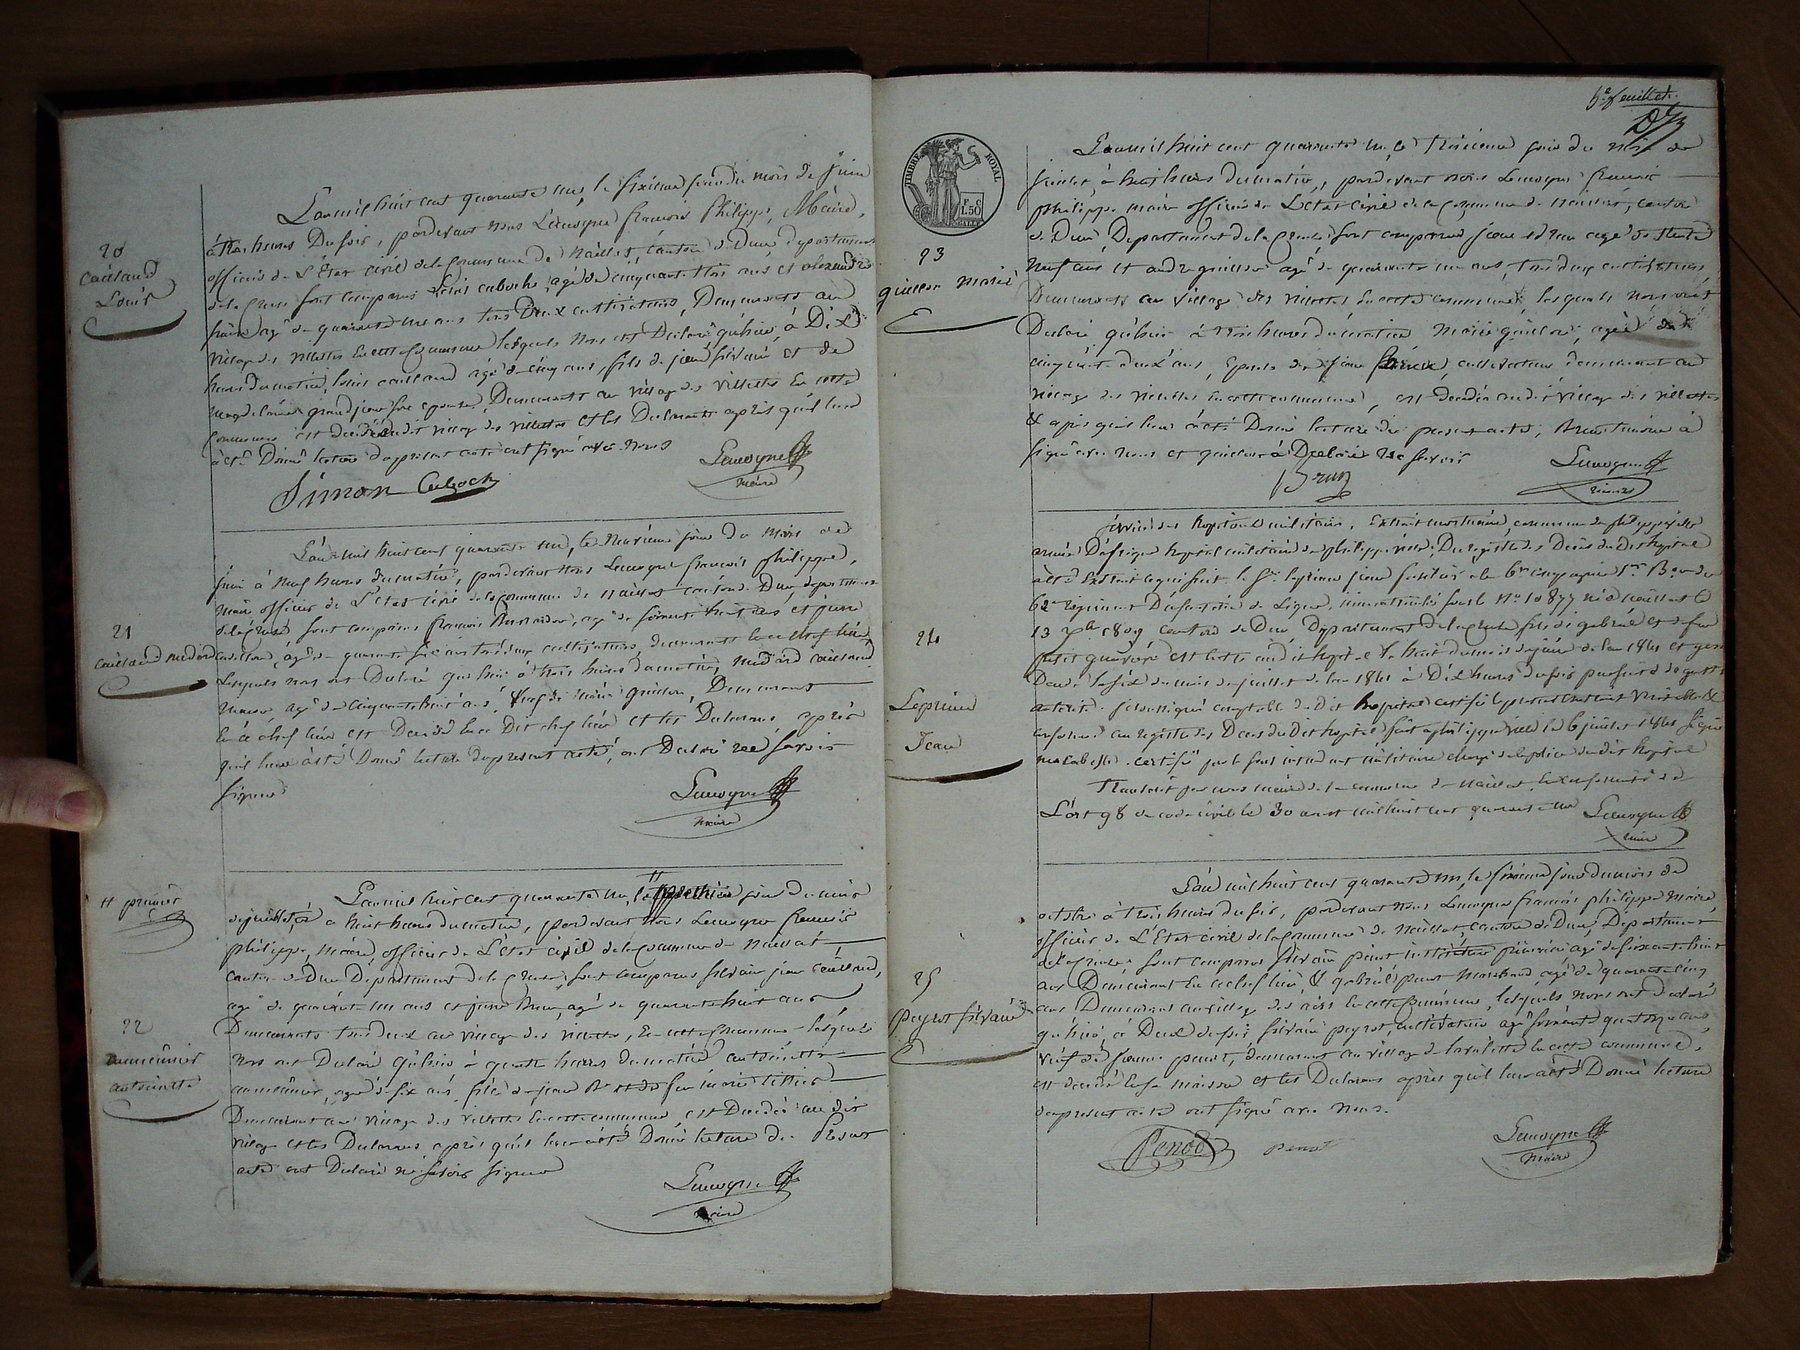 20
Caillaud
Louis
L'an mil huit cent quarante un, le sixième jour du mois de juin
à trois heures du soir, pardevant nous Lemoyne françois Philippe, Maire,
officier de L'Etat civil de la Commune de Naillat, canton de Dun, departement
de la Creuse sont comparus Louis caboche, agé de cinquante trois ans et alexandre
agé de quarante un ans tous Deux cultivateurs, Demeurants au
village des villettes en cette Commune lesquels nous ont Declaré qu'hier, à Dix
heures du matin, Louis caillaud agé de cinq ans, fils de jean silvain et de
magdelaine grandjean son epouse, Demeurants au village des villettes En cette
Commune est decédé audit village des villettes et les Declarants après qu'il leur
a été Donné lecture du présent acte ont signé avec nous
Simon Caboche
Lemoyne
Maire
21
Caillaud medard
L'an mil huit cent quarante un, le neuvième jour du mois de
juin à neuf heures du matin, pardevant nous Lemoyne francois philippe,
maire officier de L'Etat civil de la commune de naillat canton de Dun, departement
de la creuse sont comparus francois agé de soixante huit ans et pierre
caillaud, agé de quarante six ans tous deux cultivateurs, demeurants en ce chef lieu
Lesquels nous ont Declaré que hier à trois heures du matin, medard caillaud
agé de cinquante huit ans, veuf de marie guillon, Demeurant
En ce chef lieu est Decédé En ce Dit chef lieu et les Declarants, après
qu'il leur a été Donné lecture du present acte, ont Declaré ne savoir
signer
Lemoyne
Maire
# premier
22
aumeunier
antoinette
L'an mil huit cent quarante un, le # jour du mois
de juillet, à huit heures du matin, pardevant nous Lemoyne francois
philippe, Maire, officier de L'Etat civil de la Commune de Naillat
canton de Dun Département de la Creuse, sont comparus silvain jean caillaud,
agé de quarante un ans et jean agé de quarante huit ans
Demeurants tous deux au village des villettes, En cette commune lesquels
nous ont Declaré qu'hier à quatre heures du matin antoinette
aumeunier, agée de six ans, fille de jean et de feu marie
Demeurant au village des villettes En cette commune, est Decédée au dit
village et les Declarants après qu'il leur a été Donné lecture du Présent
acte ont Declaré ne savoir signer
Lemoyne
maire
5e feuillet.
TIMBRE ROYAL
1F 50C
23
guillon marie
L'an mil huit cent quarante un, le troisième jour du mois de
juillet, à huit heures du matin, pardevant nous Lemoyne francois
philippe maire officier de L'Etat civil de la Commune de naillat, canton
de Dun, Departement de la Creuse, sont comparus jean Brun agé de trente
neuf ans et andre guillon agé de quarante un ans, tous deux cultivateurs
Demeurants au village des villettes En cette commune, lesquels nous ont
Declaré qu'hier à trois heures du matin marie guillon, agée de
cinquante deux ans, Epouse de jean cultivateur demeurant au
village des villettes en cette commune, est decédée audit village des villettes
& après qu'il leur a été Donné lecture du present acte, Brun témoin a
signé avec nous et guillon a Declaré ne savoir
Brun
Lemoyne
maire
24
Leprieur
Jean
service des hopitaux militaires, Extrait mortuaire, commune de philippeville
armée D'afrique hopital militaire de philippeville, Du registre des Décès dudit hopital
a été Extrait ce qui suit. le Sr leprieur jean fusilier à la 6me compagnie 1er Bon du
62e régiment D'infanterie de Ligne, immatriculé sous le No 10877 né à naillat le
13 1809 canton de Dun, Departement de la Creuse fils de gabriel et de feu
est entré au dit hopital le huit du mois de juin de l'an 1841 et y est
Decédé le six du mois de juillet de l'an 1841 à Dix heures du soir par suite de
Je soussigné comptable du Dit hopital certifie le présent extrait véritable &
conforme au registre des Décès du Dit hopital fait à philippeville le 6 juillet 1841 signé
certifié par le sous intendant militaire chargé de la police du dit hopital
Transcrit par nous maire de la commune de Naillat, En conformité de
L'art 98 du code civil le 30 aout mil huit cent quarante un
Lemoyne
maire
25
Peyrot silvain
L'an mil huit cent quarante un, le sixième jour du mois de
octobre à trois heures du soir, pardevant nous Lemoyne francois philippe maire,
officier de L'Etat civil de la Commune de Naillat, Canton de Dun, Departement
de la Creuse, sont comparus silvain penot instituteur primaire agé de soixante huit
ans Demeurant En ce chef lieu, & gabriel penot marchand agé de quarante cinq
ans Demeurant au village des En cette Commune, lesquels nous ont declaré
qu'hier, à Deux du soir silvain peyrot, cultivateur agé soixante quatorze ans
veuf de jeanne penot, demeurant au village de lavillette en cette commune,
est decédé En sa maison et les Declarants après qu'il leur a été Donné lecture
du present acte ont signé avec nous.
Penot
Penot
Lemoyne
Maire